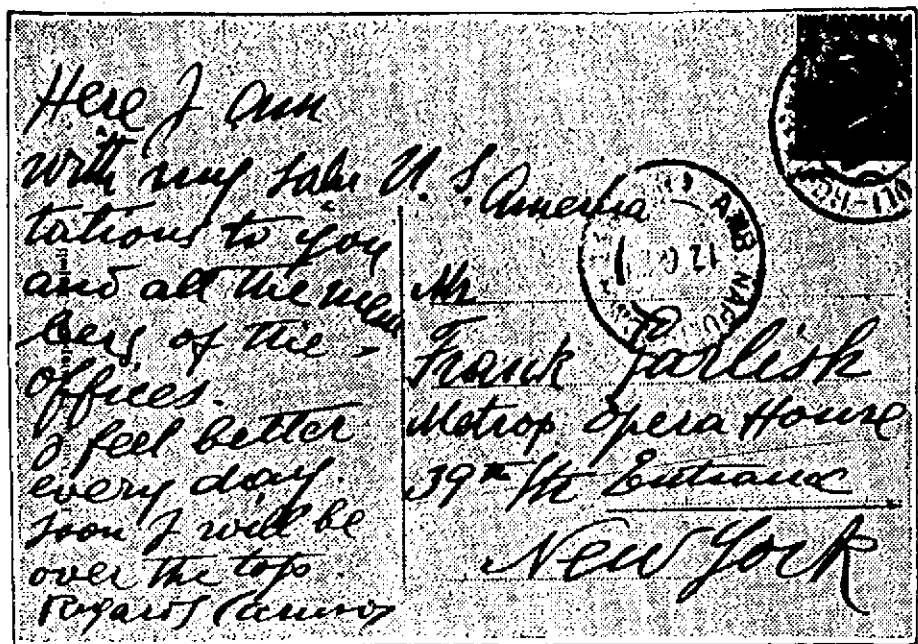 Here I am
with my salu
tations to you
and all the mem
bers of the
offices.
I feel better
every day.
Soon I will be
over the top.
Regards Caruso
U. S. America
Mr
Frank Garlisk
Metrop. Opera House
39th Str Entrance
New York
NAPOLI